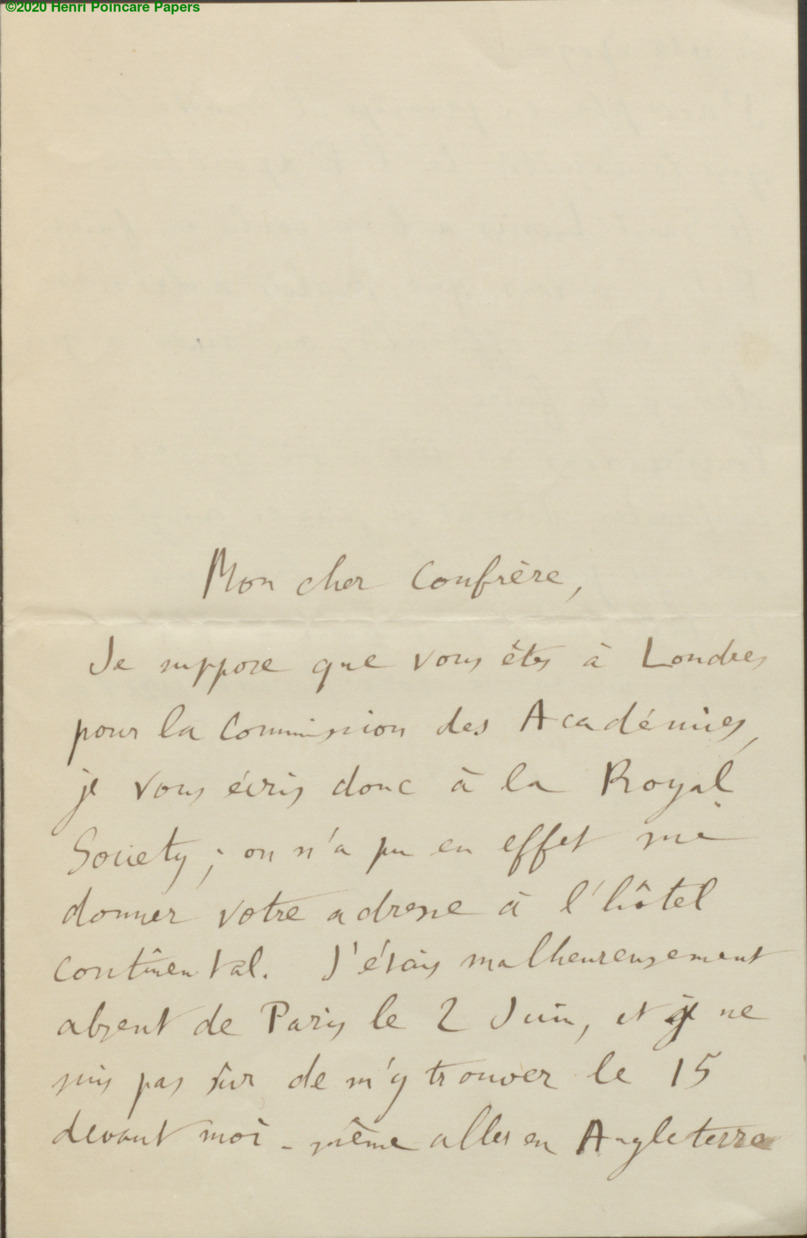 ©2020 Henri Poincare Papers
Mon cher Confrère,
Je suppose que vous êtes à Londres
pour la Commission des Académies,
je vous écris donc à la Royal
Society ; on n'a pu en effet me
donner votre adresse à l'hôtel
continental. J'étais malheureusement
absent de Paris le 2 Juin, et je ne
suis pas sûr de m'y trouver le 15
devant moi-même aller en Angleterre